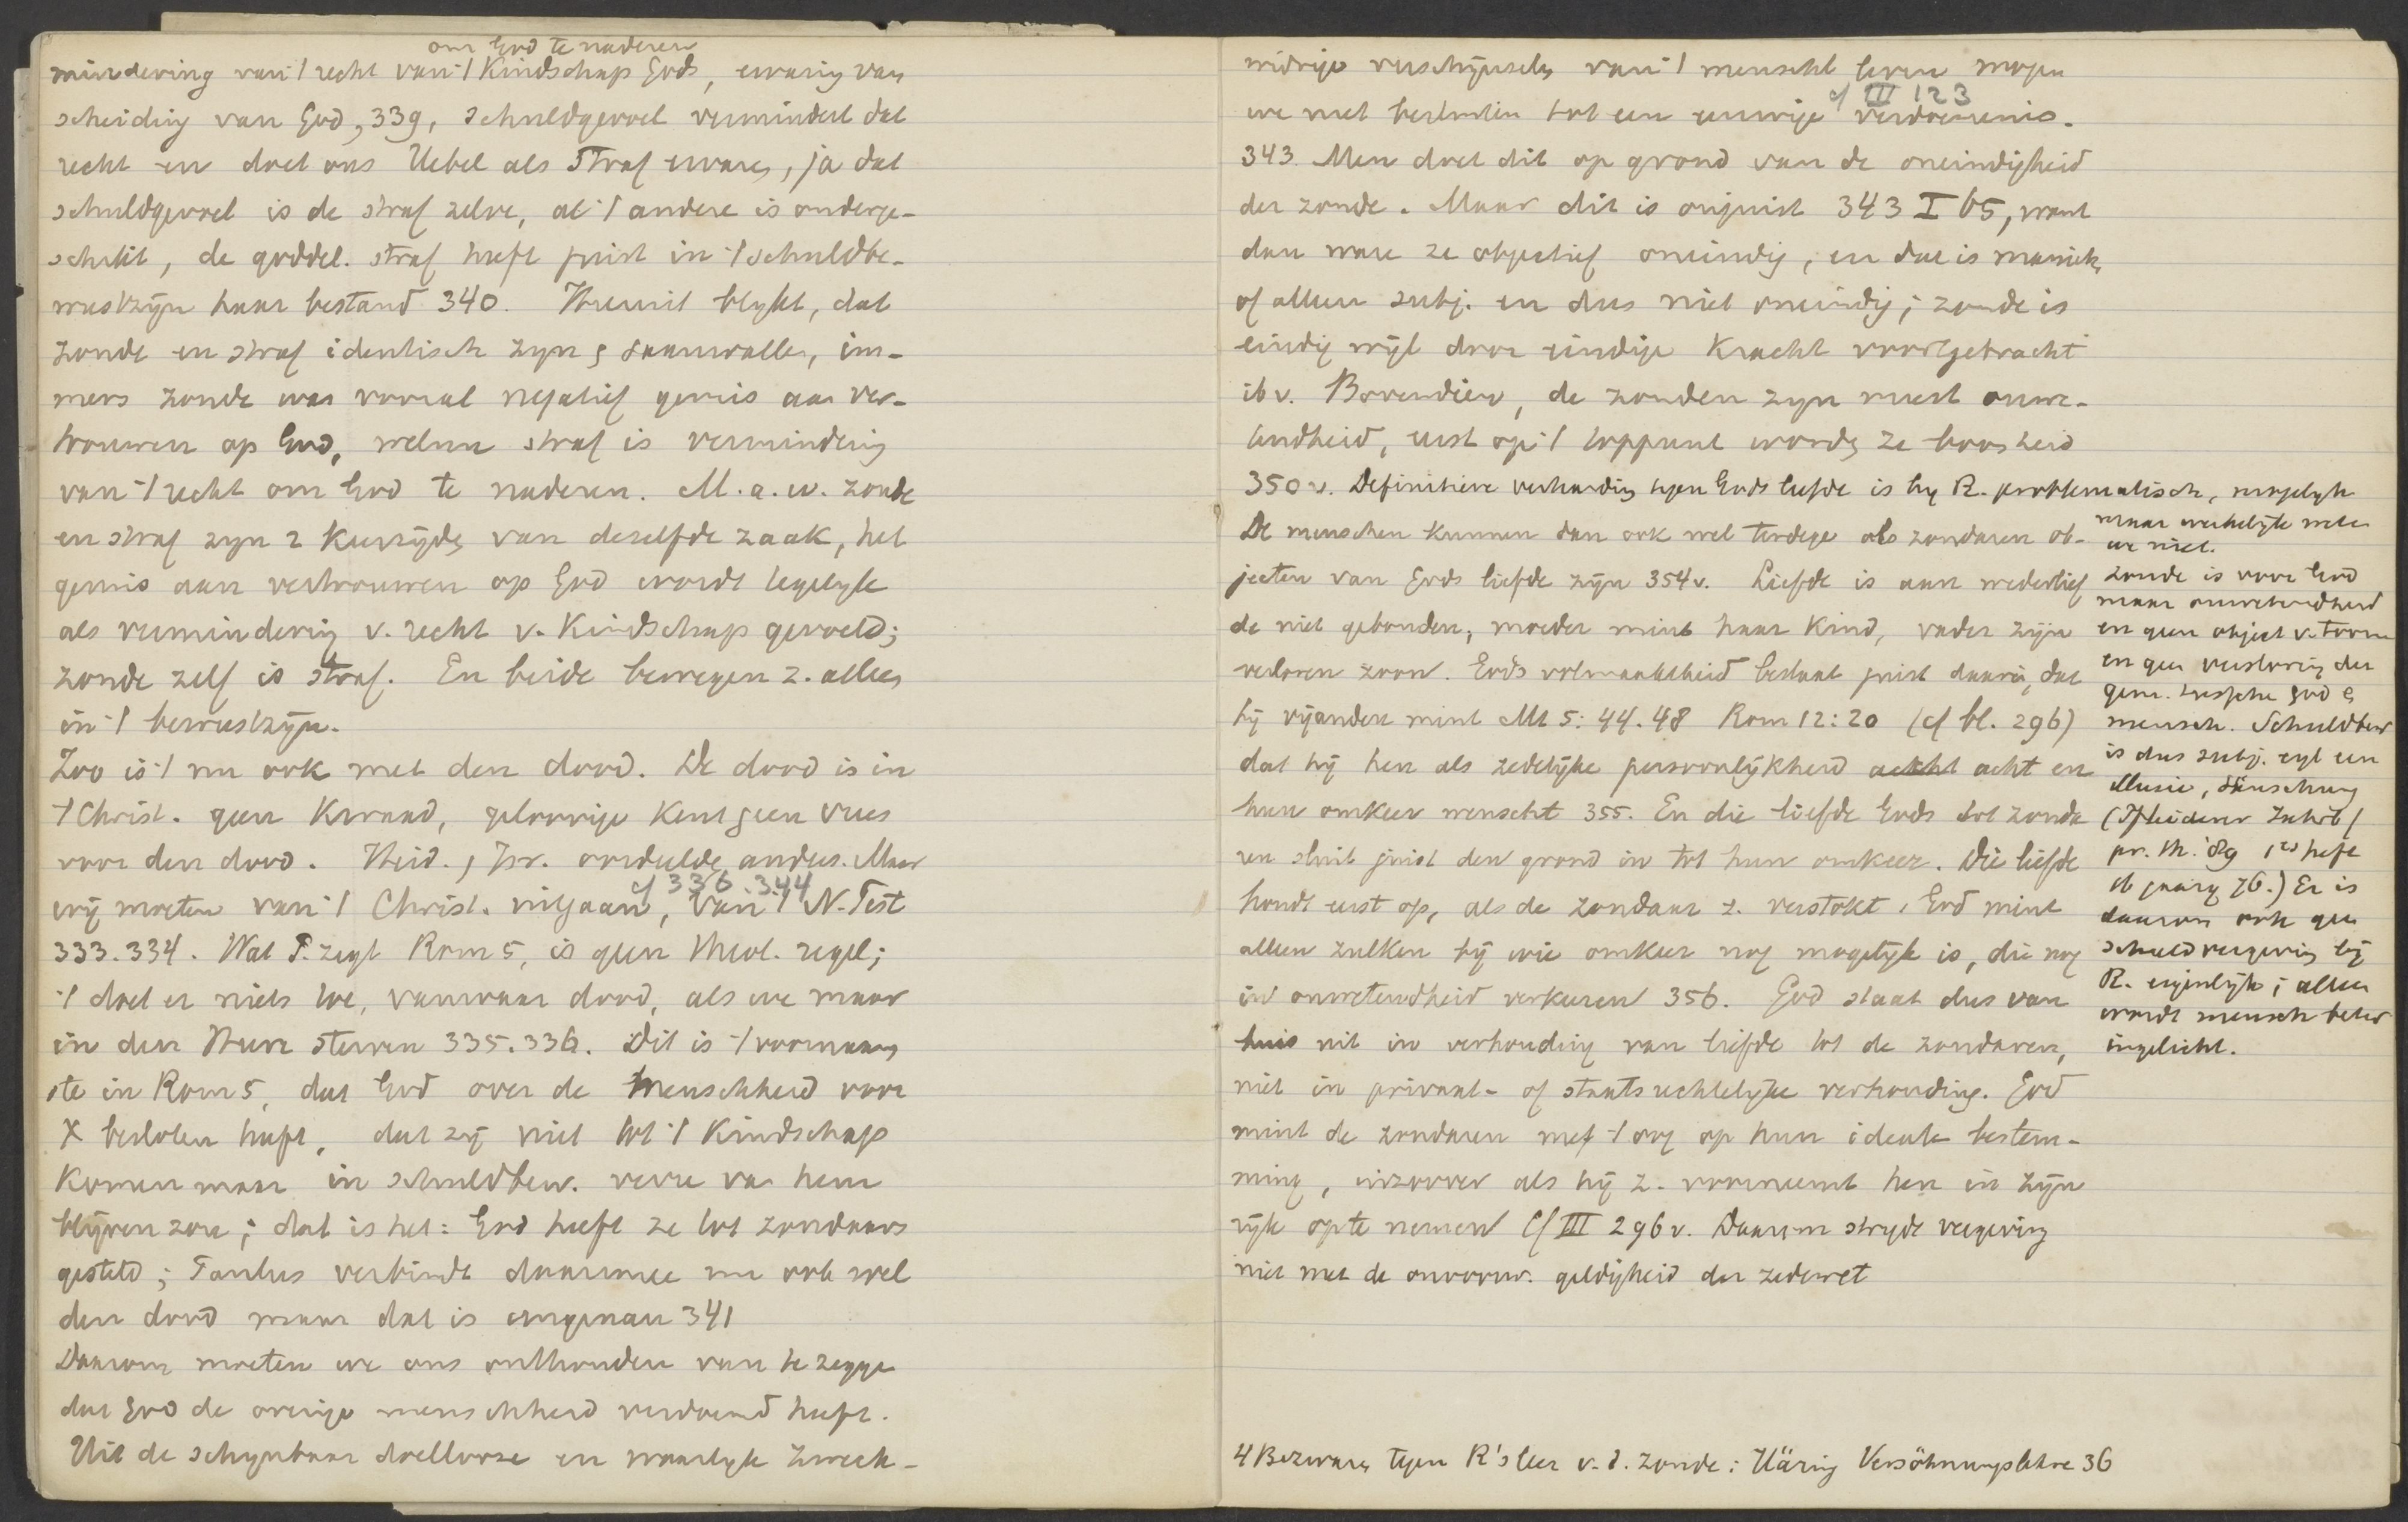 om God te naderen
mindering van 't recht van 't Kindschap Gods, ervaring van
scheiding van God, 339, schuldgevoel vermindert dat
recht en doet ons Uebel als Straf ervaren, ja dat
schuldgevoel is de straf zelve, al 't andere is onderge-
schikt, de goddel. straf heeft juist in 't schuldbe-
wustzijn haar bestand 340. Hieruit blykt, dat
zonde en straf identisch zyn, saamvallen, im-
mers zonde was vooral negatief gemis aan ver-
trouwen op God, welnu straf is vermindering
van 't recht om God te naderen. M.a.w. zonde
en straf zyn 2 keerzijden van deselfde zaak, het
gemis aan vertrouwen op God wordt tegelyk
als vermindering v. recht v. Kindschap gevoeld;
zonde zelf is straf. En beide bewegen z. alleen
in 't bewustzijn.
Zoo is 't nu ook met den dood. De dood is in
't Christ. geen Kwaad, geloovige kent geen vrees
voor den dood. Heid., Isr. oordeelde anders. Maar
cf 336.344
wij moeten van 't Christ. uitgaan, van 't N. Test
333.334. Wat P. zegt Rom 5, is geen theol. regel;
't doet er niets toe, vanwaar dood, als we maar
in den Heere sterven 335.336. Dit is 't voornaam
ste in Rom 5, dat God over de menschheid voor
X besloten heeft, dat zij niet tot 't Kindschap
Komen maar in schuldbew. verre van hem
blijven zou; dat is het: God heeft ze tot zondaars
gesteld; Paulus verbindt daarmee nu ook wel
den dood maar dat is ungenau 341
Daarom moeten we ons onthouden van te zeggen
dat God de overige menschheid verdoemd heeft.
Uit de schynbaar doellooze en waarlyk zweck-
widrige verschijnselen van 't menschl leven mogen
cf III 123
we niet besluiten tot een eeuwige verdoemenis.
343 Men doet dit op grond van de oneindigheid
der zonde. Maar dit is onjuist 343 I 65, want
dan ware ze objectief oneindig, en dat is manich,
of alleen subj. en dus niet oneindig; zonde is
eindig wijl door eindige Kracht voortgebracht
ib v. Bovendien, de zonden zyn meest onwe-
tendheid, eerst op 't toppunt worden ze boosheid
350v. Definitieve verharding tegen Gods liefde is by R. problematisch, mogelyk
maar werkelijk weten
we niet.
De menschen kunnen dan ook wel terdege als zondaren ob-
jecten van Gods liefde zijn 354v. Liefde is aan wederlief
de niet gebonden, moeder mint haar Kind, vader zijn
verloren zoon. Gods volmaaktheid bestaat juist daarin, dat
hij vijanden mint Mt 5:44.48 Rom 12:20 (cf bl. 296)
dat hij hen als zedelijke persoonlijkheid acht en
hun omkeer wenscht 355. En die liefde Gods tot zonda
ren sluit juist den grond in tot hun omkeer. Die liefde
houdt eerst op, als de zondaar z. verstokt, God mint
alleen zulken bij wie omkeer nog mogelijk is, die nog
in onwetendheid verkeeren 356. God staat dus van
huis uit in verhouding van liefde tot de zondaren,
niet in privaat- of staatsrechtelijke verhouding. God
mint de zondaren met 't oog op hun ideale bestem-
ming, inzoover als hij z. voorneemt hen in zijn
rijk op te nemen cf III 296v. Daarom strydt vergeving
niet met de onvoorw. geldigheid der zedewet
zonde is voor God
maar onwetendheid
en geen object v. toorn
en geen verstoring der
gem. tusschen God &
mensch. Schuldbew
is dus subj. egl een
illusie, Täuschung
(Pfleiderer Jahrb f
pr. Th. '89 1es heft
ib jaarg 76.) Er is
daarom ook geen
schuldvergeving bij
R. eigenlijk; alleen
wordt mensch beter
ingelicht.
4 Bezwaren tegen R's leer v. d. zonde: Häring Versöhnungslehre 36